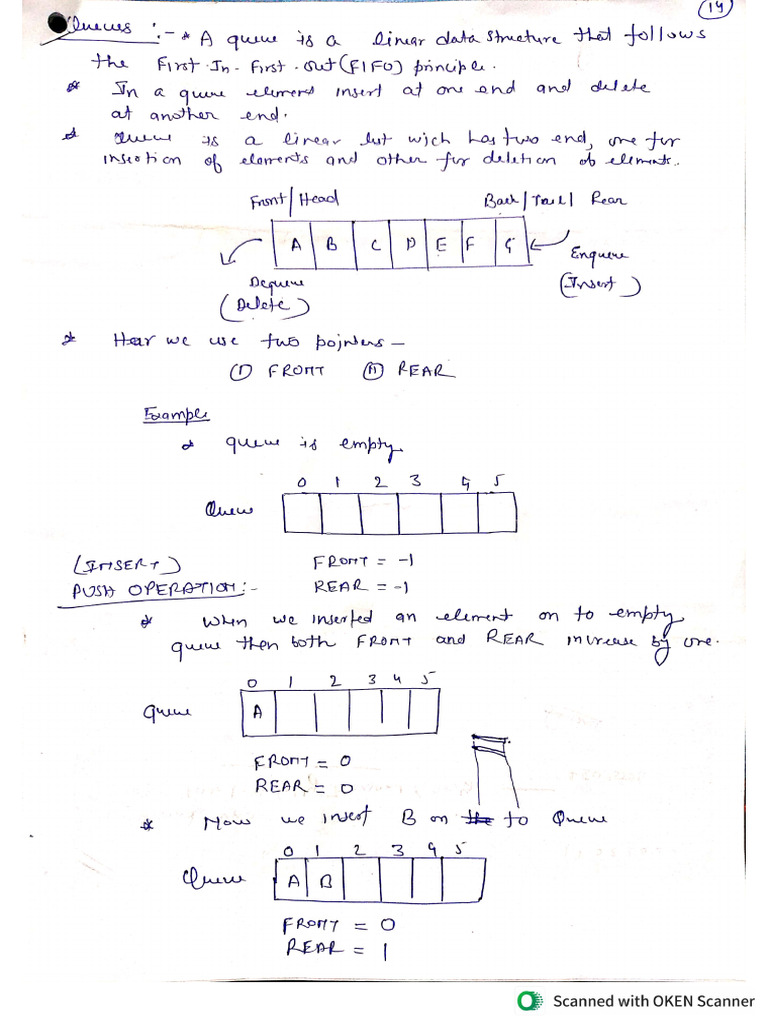 14
Queues :- * A queue is a linear data structure that follows
the First-In-First-Out (FIFO) principle.
* In a queue element insert at one end and delete
at another end.
* Queue is a linear list wich has two end, one for
insertion of elements and other for deletion of elements.
Front/Head Back/Tail/ Rear
A B C D E F G
Enqueue
(Insert)
Dequeue
(Delete)
* Hear we use two pointers -
(I) FRONT (II) REAR
Example
* queue is empty
0 1 2 3 4 5
Queue
(INSERT) FRONT = -1
PUSH OPERATION:- REAR = -1
* When we inserted an element on to empty
queue then both FRONT and REAR increase by one.
0 1 2 3 4 5
queue A
FRONT = 0
REAR = 0
* Now we insert B on the to Queue
0 1 2 3 4 5
Queue A B
FRONT = 0
REAR = 1
Scanned with OKEN Scanner